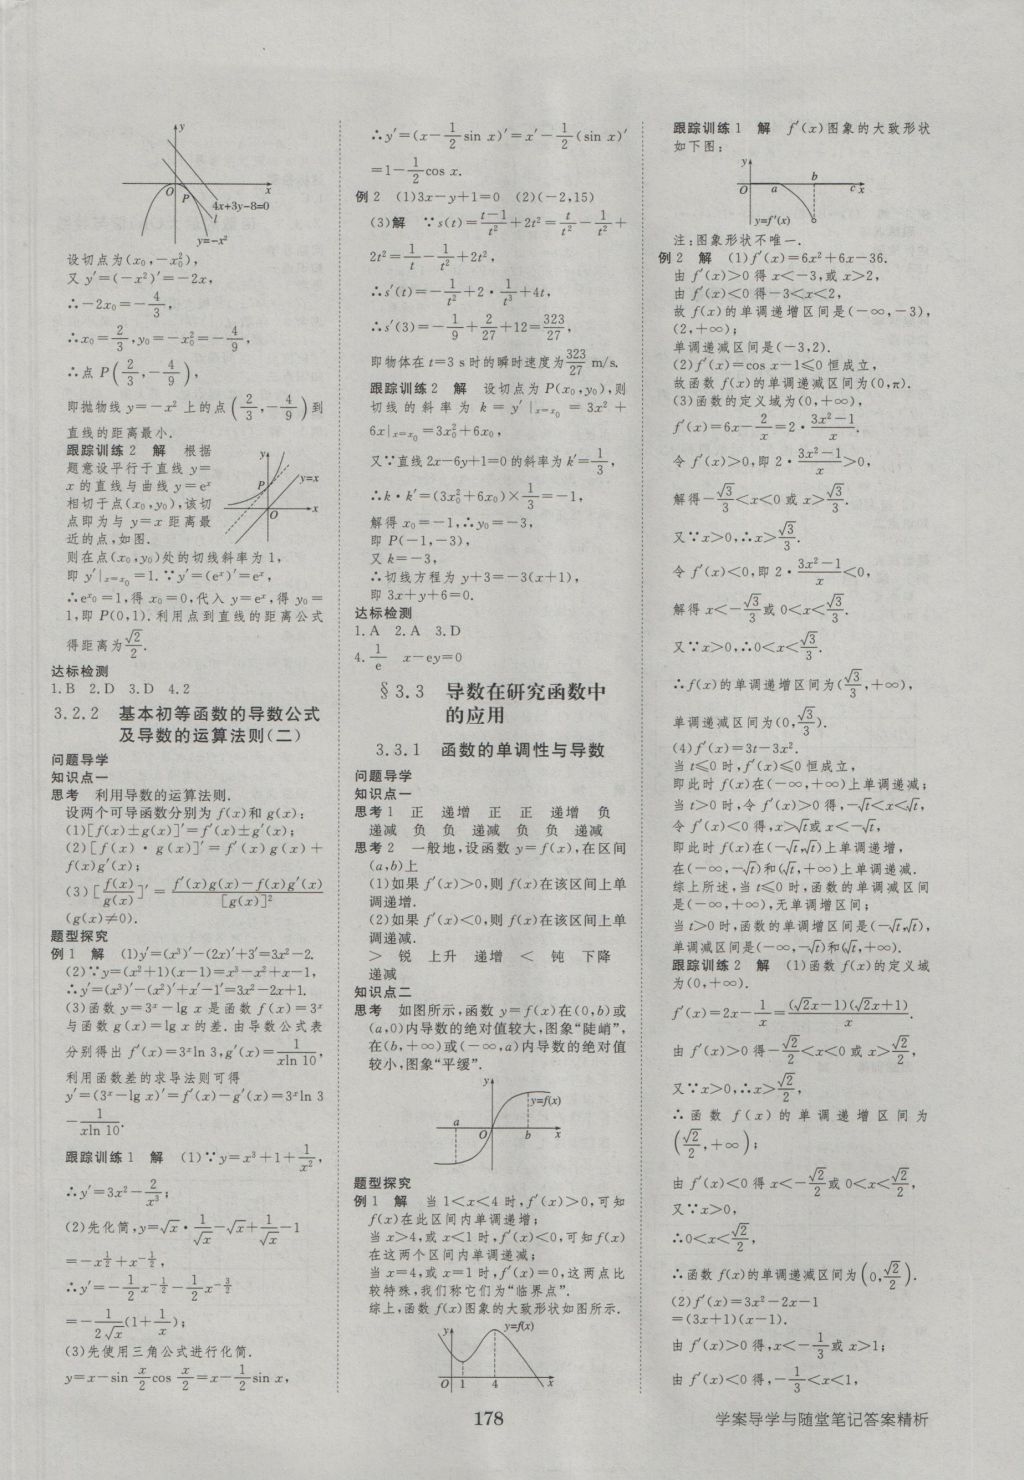 y
O
P
x
4x+3y-8=0
l
y=-x²
设切点为(x₀,-x₀²),
又 y′=(-x²)′=-2x,
∴-2x₀=-4/3,
∴x₀=2/3,y₀=-x₀²=-4/9,
∴点 P(2/3,-4/9),
即抛物线 y=-x² 上的点(2/3,-4/9)到
直线的距离最小.
跟踪训练 2 解 根据
题意设平行于直线 y=
x 的直线与曲线 y=eˣ
相切于点(x₀,y₀),该切
点即为与 y=x 距离最
近的点,如图.
y
y=x
P
O
x
则在点(x₀,y₀)处的切线斜率为 1,
即 y′|ₓ₌ₓ₀=1.∵y′=(eˣ)′=eˣ,
∴e^x₀=1,得 x₀=0,代入 y=eˣ,得 y₀=
1,即 P(0,1).利用点到直线的距离公式
得距离为√2/2.
达标检测
1.B 2.D 3.D 4.2
3.2.2 基本初等函数的导数公式
及导数的运算法则(二)
问题导学
知识点一
思考 利用导数的运算法则.
设两个可导函数分别为 f(x)和 g(x):
(1)[f(x)±g(x)]′=f′(x)±g′(x);
(2)[f(x)·g(x)]′=f′(x)g(x)+
f(x)g′(x);
(3)[f(x)/g(x)]′=(f′(x)g(x)-f(x)g′(x))/[g(x)]²
(g(x)≠0).
题型探究
例 1 解 (1)y′=(x³)′-(2x)′+3′=3x²-2.
(2)∵y=(x²+1)(x-1)=x³-x²+x-1,
∴y′=(x³)′-(x²)′+x′-1′=3x²-2x+1.
(3)函数 y=3ˣ-lg x 是函数 f(x)=3ˣ
与函数 g(x)=lg x 的差.由导数公式表
分别得出 f′(x)=3ˣln 3,g′(x)=1/(xln 10),
利用函数差的求导法则可得
y′=(3ˣ-lg x)′=f′(x)-g′(x)=3ˣln 3
-1/(xln 10).
跟踪训练 1 解 (1)∵y=x³+1+1/x²,
∴y′=3x²-2/x³;
(2)先化简,y=√x·1/√x-√x+1/√x-1
=-x^(1/2)+x^(-1/2),
∴y′=-1/2 x^(-1/2)-1/2 x^(-3/2)
=-1/(2√x)(1+1/x);
(3)先使用三角公式进行化简.
y=x-sin x/2 cos x/2=x-1/2 sin x,
∴y′=(x-1/2 sin x)′=x′-1/2(sin x)′
=1-1/2 cos x.
例 2 (1)3x-y+1=0 (2)(-2,15)
(3)解 ∵s(t)=(t-1)/t²+2t²=t/t²-1/t²+
2t²=1/t-1/t²+2t²,
∴s′(t)=-1/t²+2·1/t³+4t,
∴s′(3)=-1/9+2/27+12=323/27,
即物体在 t=3 s 时的瞬时速度为323/27 m/s.
跟踪训练 2 解 设切点为 P(x₀,y₀),则
切线的斜率为 k=y′|ₓ₌ₓ₀=3x²+
6x|ₓ₌ₓ₀=3x₀²+6x₀,
又∵直线 2x-6y+1=0 的斜率为 k′=1/3,
∴k·k′=(3x₀²+6x₀)×1/3=-1,
解得 x₀=-1,∴y₀=-3,
即 P(-1,-3),
又 k=-3,
∴切线方程为 y+3=-3(x+1),
即 3x+y+6=0.
达标检测
1.A 2.A 3.D
4.1/e x-ey=0
§3.3 导数在研究函数中
的应用
3.3.1 函数的单调性与导数
问题导学
知识点一
思考 1 正 递增 正 正 递增 负
递减 负 负 递减 负 负 递减
思考 2 一般地,设函数 y=f(x),在区间
(a,b)上
(1)如果 f′(x)>0,则 f(x)在该区间上单
调递增.
(2)如果 f′(x)<0,则 f(x)在该区间上单
调递减.
> 锐 上升 递增 < 钝 下降
递减
知识点二
思考 如图所示,函数 y=f(x)在(0,b)或
(a,0)内导数的绝对值较大,图象“陡峭”,
在(b,+∞)或(-∞,a)内导数的绝对值
较小,图象“平缓”.
y
y=f(x)
a
O
b
x
题型探究
例 1 解 当 1<x<4 时,f′(x)>0,可知
f(x)在此区间内单调递增;
当 x>4,或 x<1 时,f′(x)<0,可知 f(x)
在这两个区间内单调递减;
当 x=4,或 x=1 时,f′(x)=0,这两点比
较特殊,我们称它们为“临界点”.
综上,函数 f(x)图象的大致形状如图所示.
y
y=f(x)
O 1 4 x
跟踪训练 1 解 f′(x)图象的大致形状
如下图:
y
b
O
a
c x
y=f′(x)
注:图象形状不唯一.
例 2 解 (1)f′(x)=6x²+6x-36.
由 f′(x)>0 得 x<-3,或 x>2,
由 f′(x)<0 得-3<x<2,
故 f(x)的单调递增区间是(-∞,-3),
(2,+∞);
单调递减区间是(-3,2).
(2)f′(x)=cos x-1≤0 恒成立,
故函数 f(x)的单调递减区间为(0,π).
(3)函数的定义域为(0,+∞),
f′(x)=6x-2/x=2·(3x²-1)/x.
令 f′(x)>0,即 2·(3x²-1)/x>0,
解得-√3/3<x<0 或 x>√3/3.
又∵x>0,∴x>√3/3.
令 f′(x)<0,即 2·(3x²-1)/x<0,
解得 x<-√3/3 或 0<x<√3/3.
又∵x>0,∴0<x<√3/3.
∴f(x)的单调递增区间为(√3/3,+∞),
单调递减区间为(0,√3/3).
(4)f′(x)=3t-3x².
当 t≤0 时,f′(x)≤0 恒成立,
即此时 f(x)在(-∞,+∞)上单调递减;
当 t>0 时,令 f′(x)>0 得,-√t<x<√t,
令 f′(x)<0 得,x>√t或 x<-√t,
即此时 f(x)在(-√t,√t)上单调递增,
在(-∞,-√t)和(√t,+∞)上单调递减.
综上所述,当 t≤0 时,函数的单调减区间
是(-∞,+∞),无单调增区间;
当 t>0 时,函数的单调增区间是(-√t,√t),
单调减区间是(-∞,-√t)和(√t,+∞).
跟踪训练 2 解 (1)函数 f(x)的定义域
为(0,+∞).
f′(x)=2x-1/x=(√2x-1)(√2x+1)/x.
由 f′(x)>0 得-√2/2<x<0 或 x>√2/2,
又∵x>0,∴x>√2/2,
∴函数 f(x)的单调递增区间为
(√2/2,+∞);
由 f′(x)<0 得 x<-√2/2或 0<x<√2/2,
又∵x>0,
∴0<x<√2/2,
∴函数 f(x)的单调递减区间为(0,√2/2).
(2)f′(x)=3x²-2x-1
=(3x+1)(x-1).
由 f′(x)>0 得,x<-1/3或 x>1;
由 f′(x)<0 得,-1/3<x<1,
178
学案导学与随堂笔记答案精析